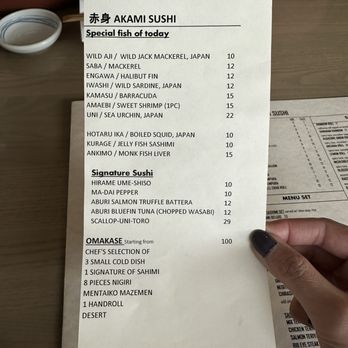 赤身 AKAMI SUSHI
Special fish of today
WILD AJI / WILD JACK MACKEREL, JAPAN 10
SABA / MACKEREL 12
ENGAWA / HALIBUT FIN 12
IWASHI / WILD SARDINE, JAPAN 12
KAMASU / BARRACUDA 15
AMAEBI / SWEET SHRIMP (1PC) 15
UNI / SEA URCHIN, JAPAN 22
HOTARU IKA / BOILED SQUID, JAPAN 10
KURAGE / JELLY FISH SASHIMI 10
ANKIMO / MONK FISH LIVER 15
Signature Sushi
HIRAME UME-SHISO 10
MA-DAI PEPPER 10
ABURI SALMON TRUFFLE BATTERA 12
ABURI BLUEFIN TUNA (CHOPPED WASABI) 12
SCALLOP-UNI-TORO 29
OMAKASE Starting from 100
CHEF'S SELECTION OF
3 SMALL COLD DISH
1 SIGNATURE OF SAHIMI
8 PIECES NIGIRI
MENTAIKO MAZEMEN
1 HANDROLL
DESERT
MENU SET